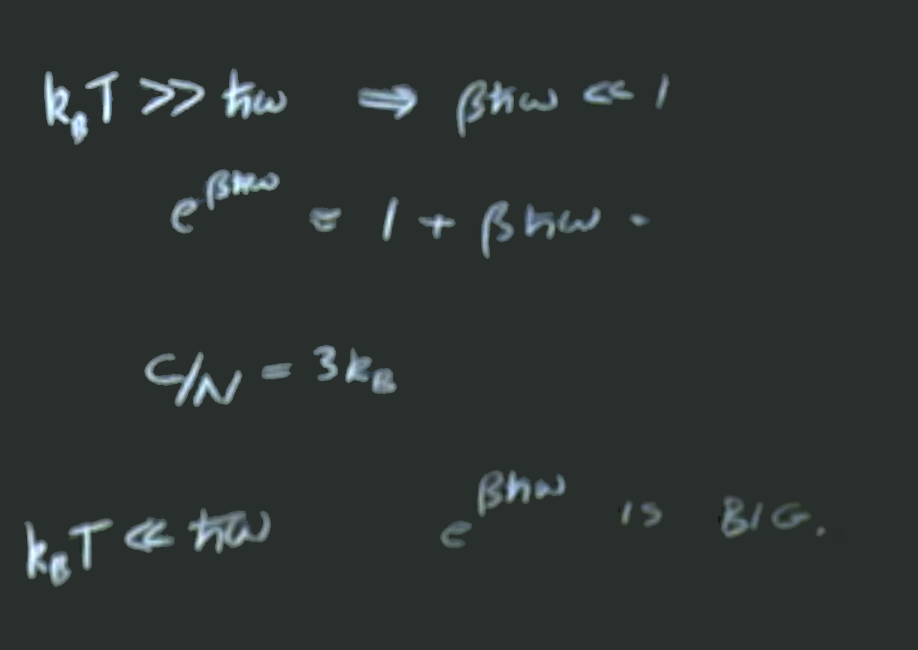 k_B T >> ħω ⇒ βħω << 1
e^{βħω} = 1 + βħω -
C/N = 3k_B
k_B T << ħω e^{βħω} IS BIG.